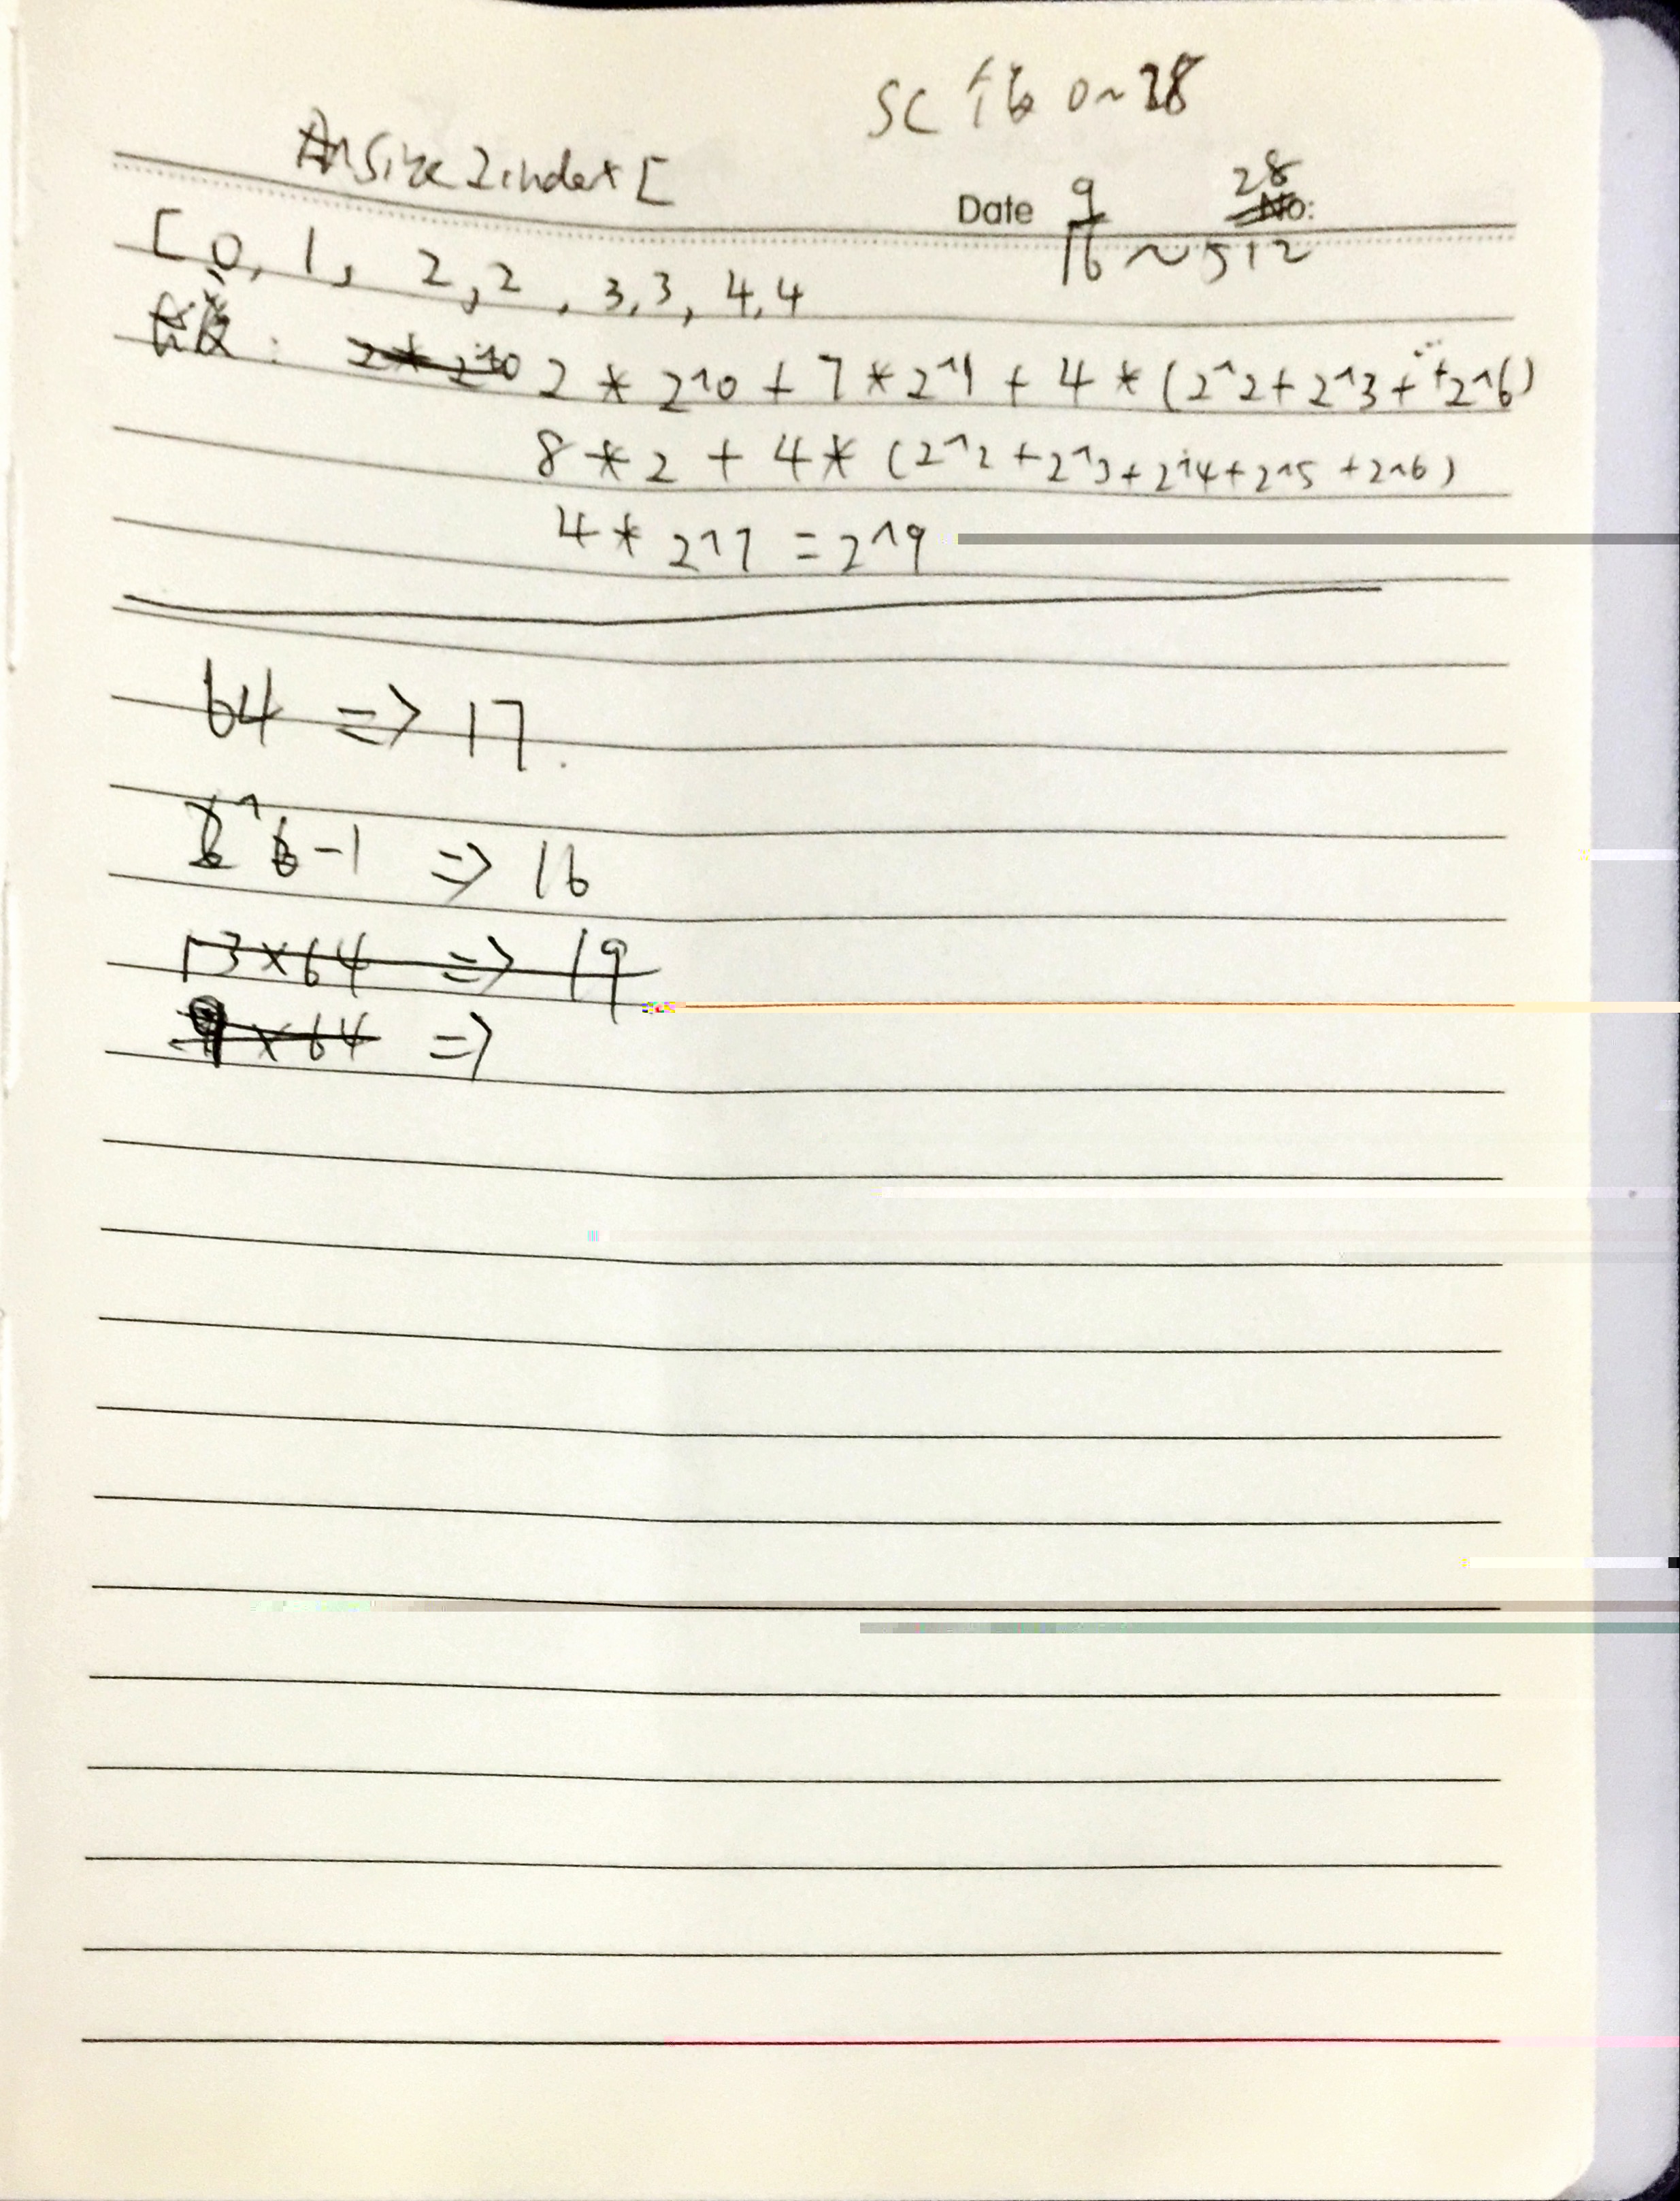 SC 值 0~28
Size2index[
Date 9 28 No:
16 ~ 512
[0, 1, 2, 2, 3, 3, 4, 4
2 * 2^0 + 7 * 2^1 + 4 * (2^2 + 2^3 + ... + 2^6)
8 * 2 + 4 * (2^2 + 2^3 + 2^4 + 2^5 + 2^6)
4 * 2^7 = 2^9
64 => 17.
2^6-1 => 16
13×64 => 19
9×64 =>